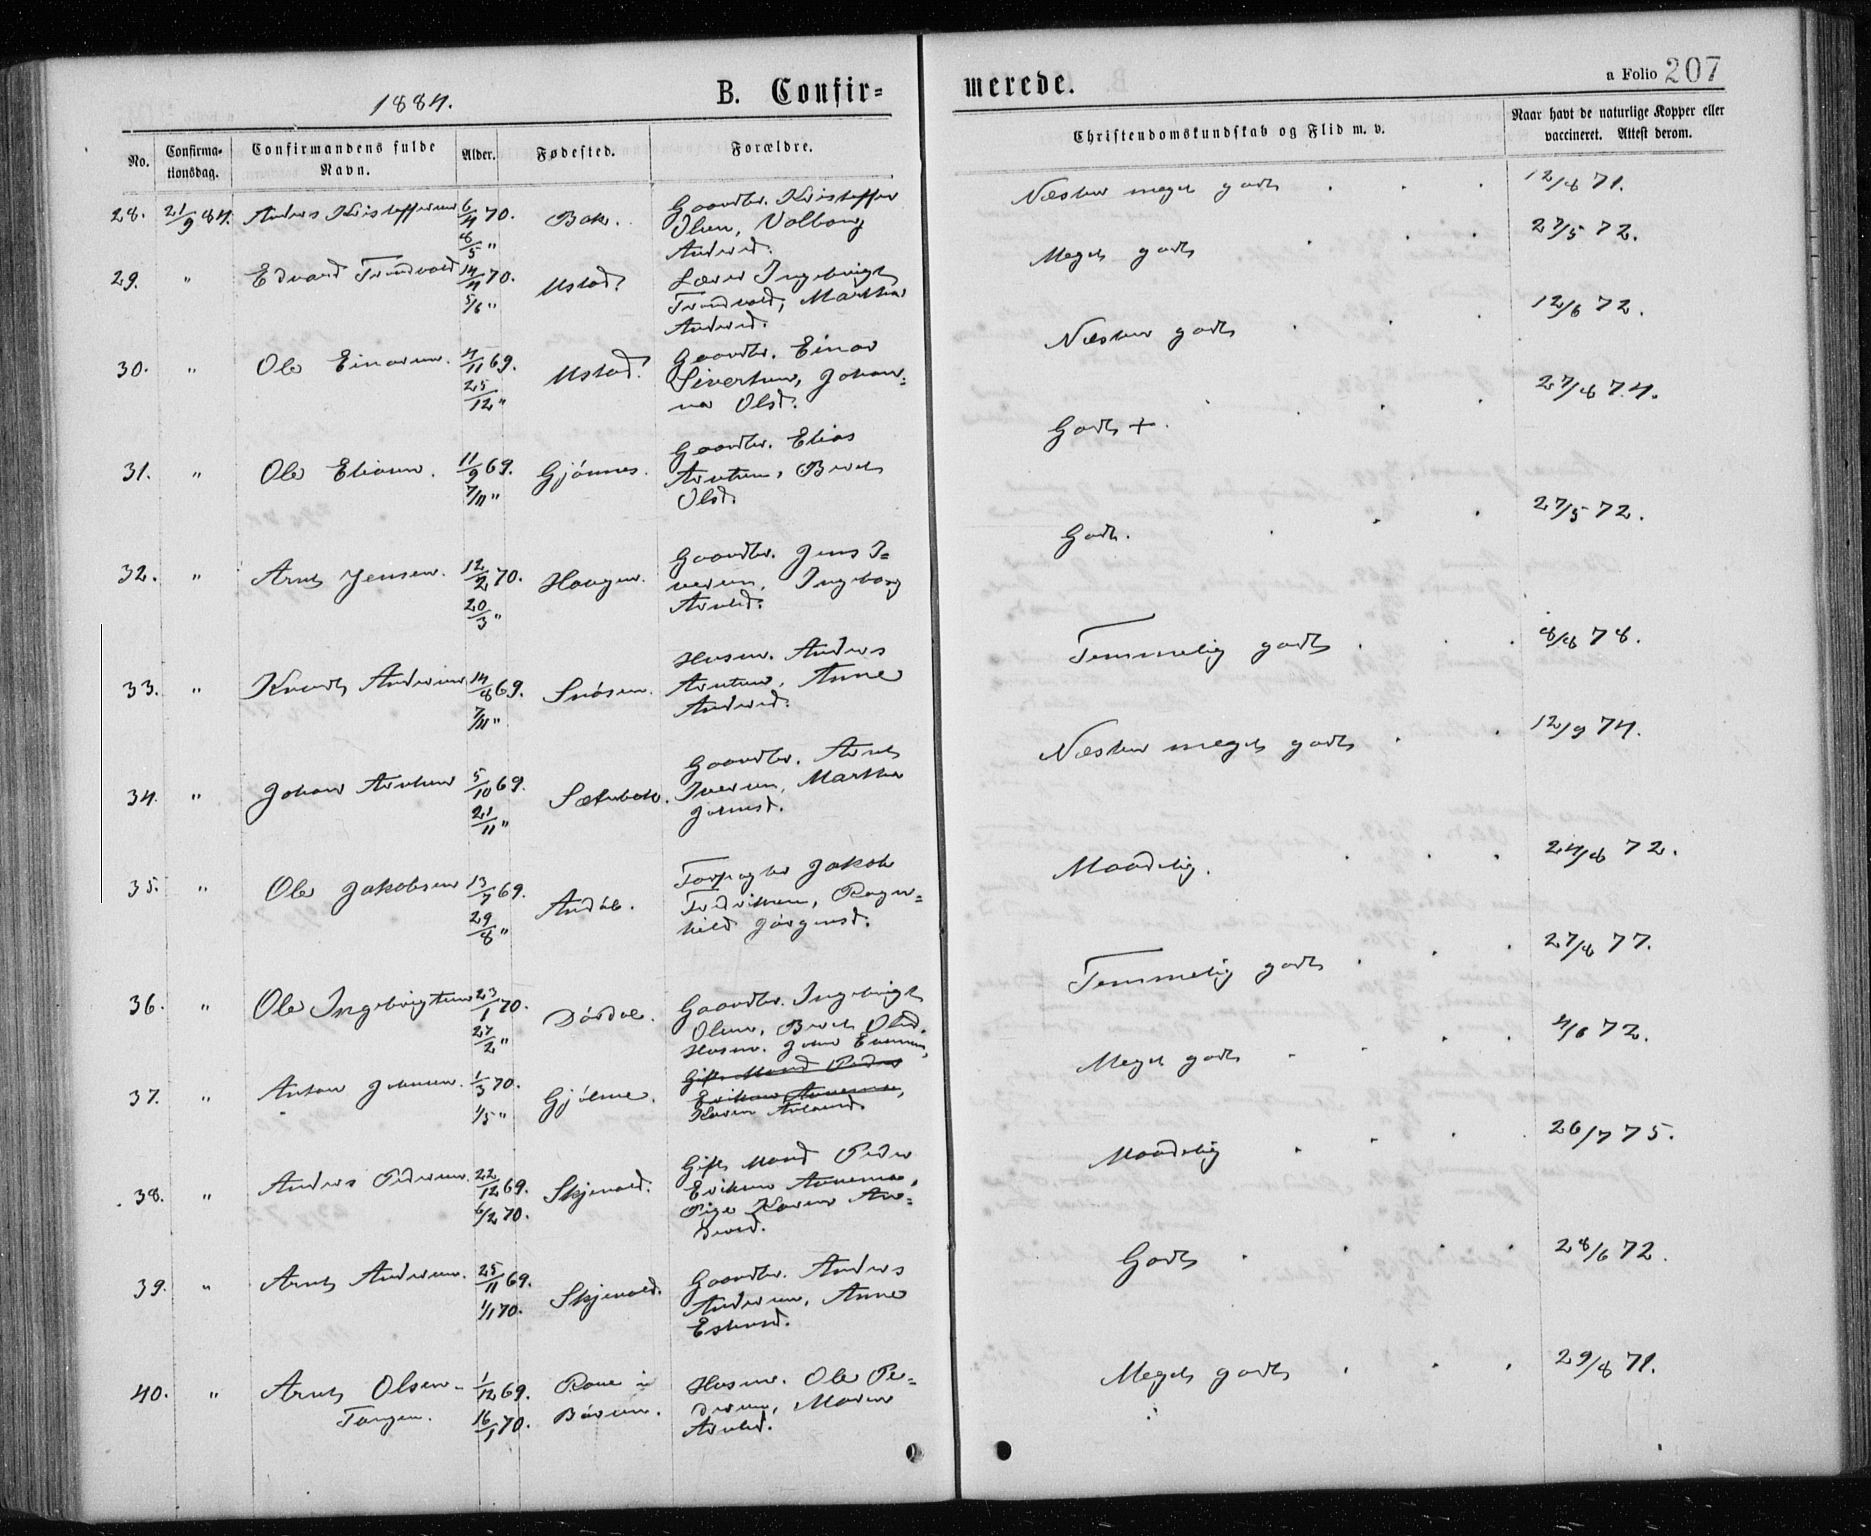 1884.
B. Confir=
merede.
a Folio 207
No.
Confirma-
tionsdag.
Confirmandens fulde
Navn.
Alder.
Fødested.
Forældre.
Christendomskundskab og Flid m. v.
Naar havt de naturlige Kopper eller
vaccineret. Attest derom.
28. 21/9 84. Anders Kristoffersen 6/4 70. Bak. Gaardbr. Kristoffer
8/5 " Olsen, Volborg
Andersd.
Næsten meget godt . . . 12/8 71.
29. " Edvard Trondvold 14/4 70. Ustad. Lærer Ingebrigt
5/6 " Trondvold, Martha
Andersd.
Meget godt . . . 27/5 72.
30. " Ole Einarsen. 4/11 69. Ustad. Gaardbr. Einar
25/12 " Sivertsen, Johan=
na Olsd.
Næsten godt . . . 12/6 72.
31. " Ole Eliasen. 11/9 69. Gjønnes. Gaardbr. Elias
7/11 " Arntsen, Beret
Olsd.
Godt + . . . 27/8 74.
32. " Arnt Jensen. 12/2 70. Haugen. Gaardbr. Jens I=
20/3 " versen, Ingeborg
Arntsd.
Godt. . . . 27/5 72.
33. " Knudt Andersen 14/8 69. Snøsen. Husm. Anders
7/11 " Arntsen, Anne
Andersd.
Temmelig godt . . . 8/8 78.
34. " Johan Arntsen 5/10 69. Sæterbak. Gaardbr. Arnt
21/11 " Iversen, Martha
Jonsd.
Næsten meget godt . . 12/9 74.
35. " Ole Jakobsen 13/7 69. Andøl. Forpagter Jakob
29/8 " Fredriksen, Ragn=
hild Jørgensd.
Maadelig. . . . 24/8 72.
36. " Ole Ingebrigtsen 23/1 70. Dørdal. Gaardbr. Ingebrigt
27/2 " Olsen, Beret Olsd.
Temmelig godt . . . 27/8 77.
37. " Anton Johnsen. 1/3 70. Gjølme. Husm. John Evensen,
1/5 " Gift Mand Peder
Eriksen Aunemo,
Karen Arntsd.
Meget godt . . . 4/6 72.
38. " Anders Pedersen. 22/12 69. Skjenald. Gift Mand Peder
6/2 70. Eriksen Aunemo,
Pige Karen An=
dersd.
Maadelig . . . 26/7 75.
39. " Arnt Andersen. 25/11 69. Skjenald. Gaardbr. Anders
1/1 70. Andersen, Anne
Estensd.
Godt . . . 28/6 72.
40. " Arnt Olsen 1/12 69. Roue i Husm. Ole Pe=
Tangen. 16/1 70. Børsen. dersen, Maren
Arntsd.
Meget godt . . . 29/8 71.